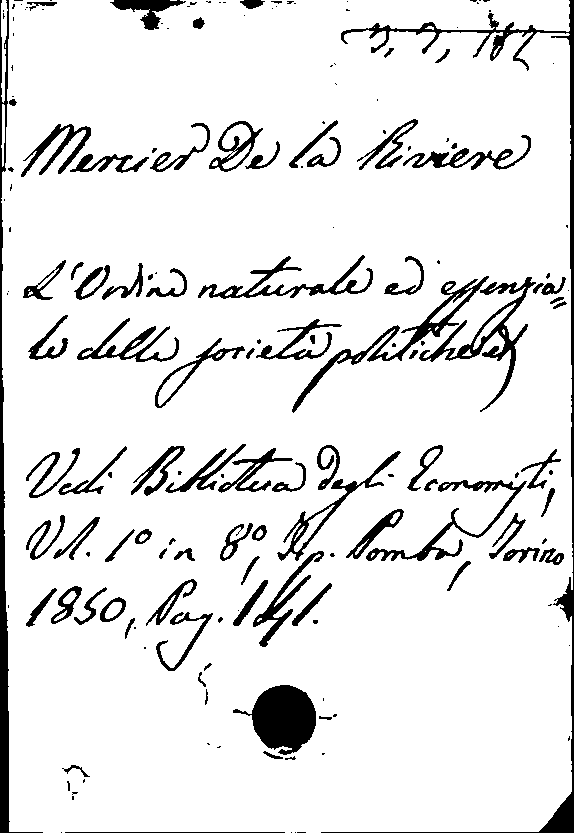 3, 7, 182
Mercier De la Riviere
L'Ordine naturale ed essenzia=
le delle società politiche
Vedi Biblioteca degli Economisti,
Vol. 1º in 8º, Tip. Pomba, Torino
1850, Pag.